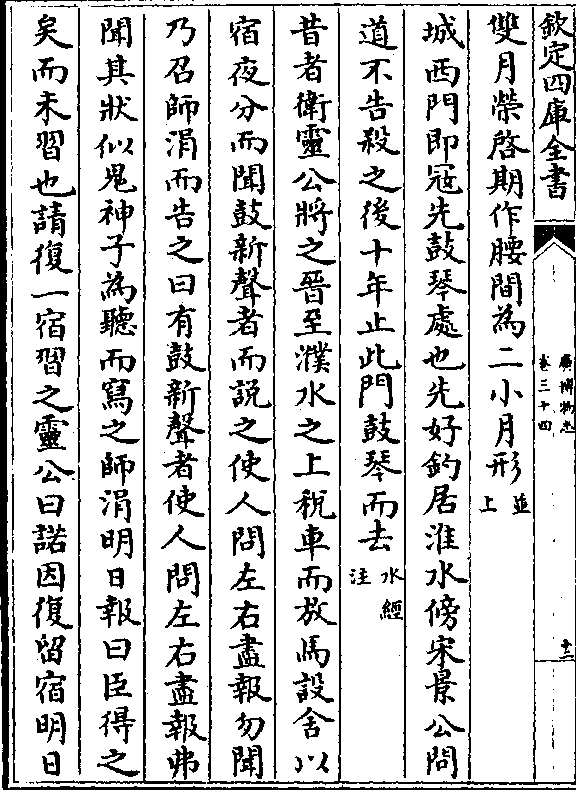 欽定四庫全書
廣博物志
卷三十四
十二
雙月榮啓期作腰間為二小月形並上
城西門即冦先鼓琴處也先好釣居淮水傍宋景公問
道不告殺之後十年止此門鼓琴而去水經注
昔者衛靈公將之晉至濮水之上税車而放馬設舍以
宿夜分而聞鼓新聲者而説之使人問左右盡報勿聞
乃召師涓而告之曰有鼓新聲者使人問左右盡報弗
聞其狀似鬼神子為聽而寫之師涓明日報曰臣得之
矣而未習也請復一宿習之靈公曰諾因復留宿明日